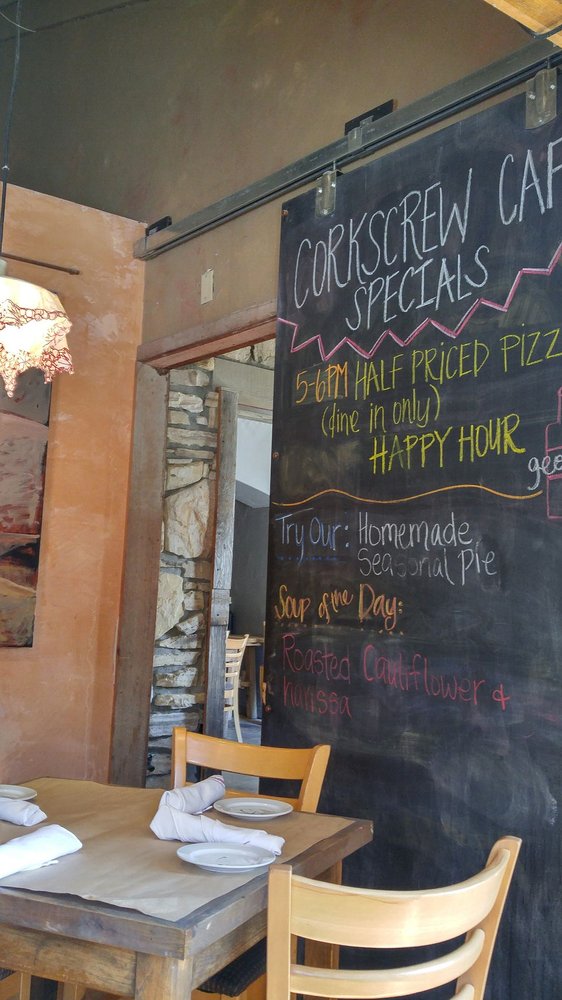 CORKSCREW CAF
SPECIALS
5-6PM HALF PRICED PIZZ
(dine in only)
HAPPY HOUR
gee
Try Our: Homemade
Seasonal Pie
Soup of the Day:
Roasted Cauliflower &
harissa